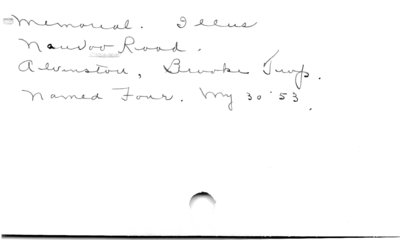 Memorial. Illus
Nauvoo Road.
Alvinston, Brooke Twp.
Named Four. My 30 '53.